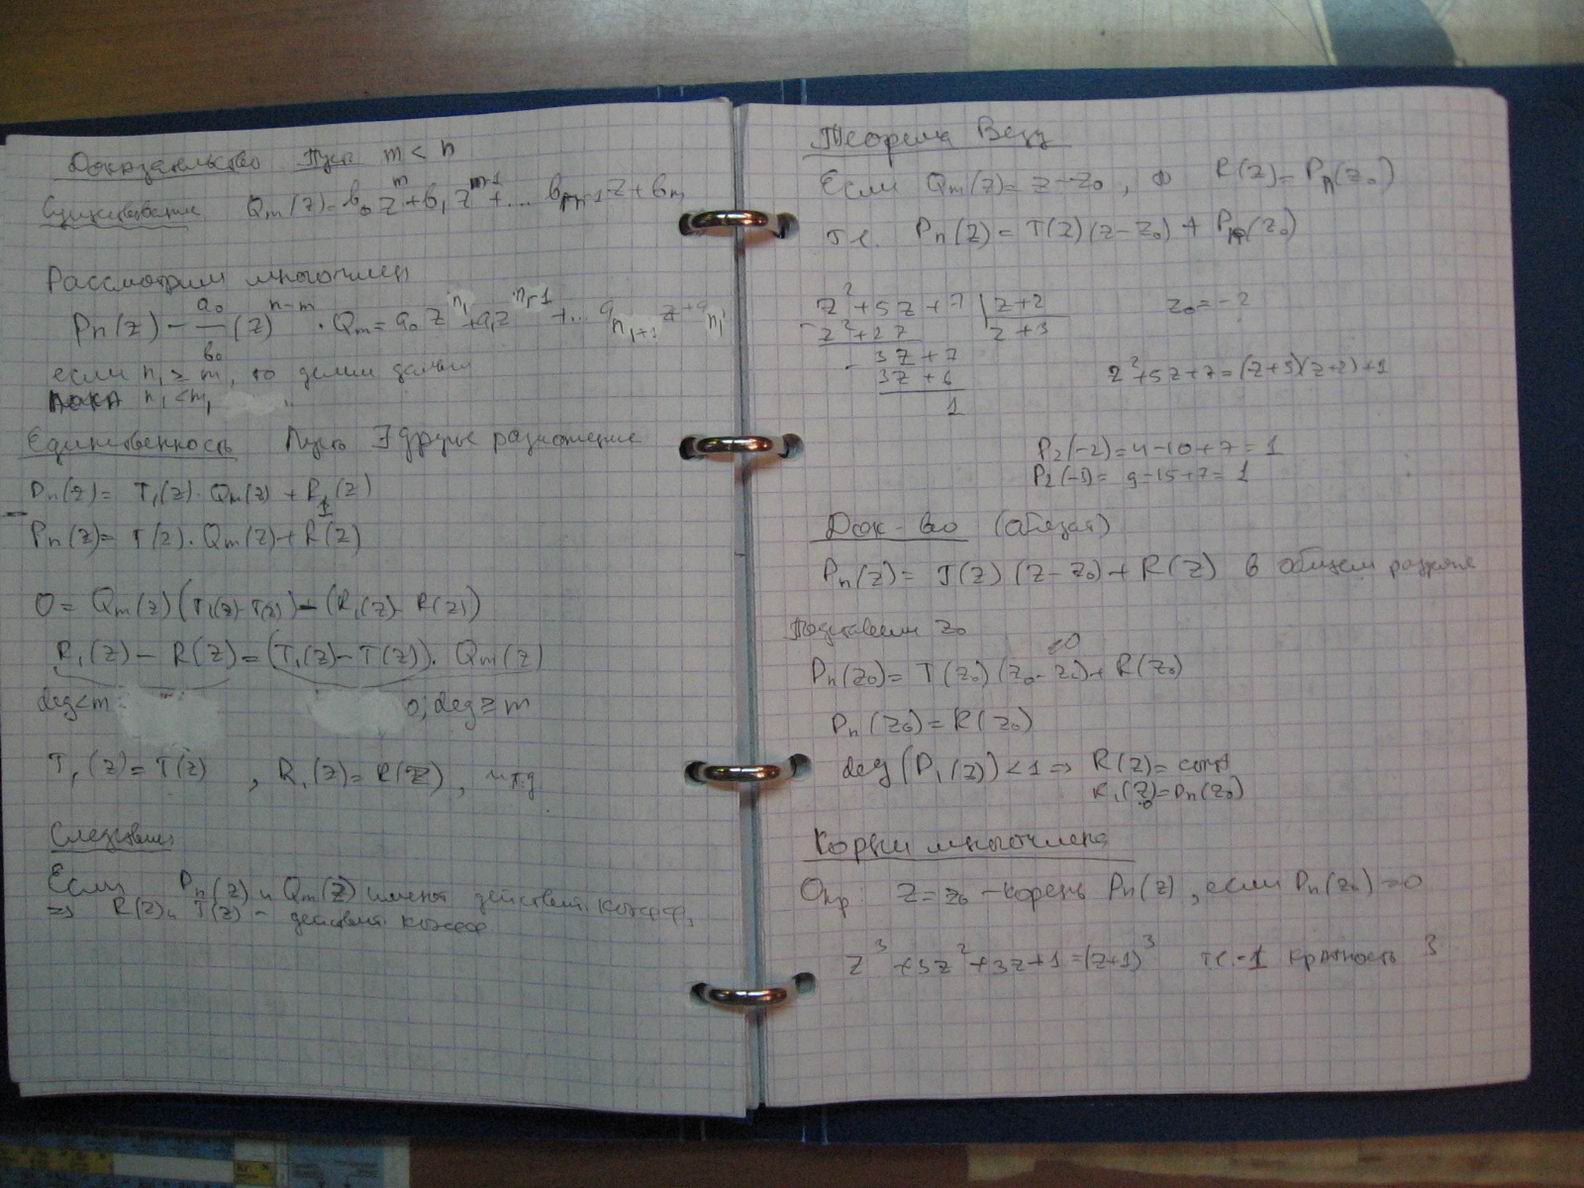 Доказательство Пусть m < n
Существование Q_m(z) = b_0 z^m + b_1 z^{m-1} + ... b_{m-1} z + b_m
Рассмотрим многочлен
P_n(z) - a_0/b_0 (z)^{n-m} · Q_m = a_0 z^{n_1} + a_1 z^{n_1-1} + ... a_{n_1+1} z + a_{n_1}
если n_1 ≥ m, то делим дальше
пока n_1 < m,
Единственность Пусть ∃ другое разложение
P_n(z) = T_1(z) · Q_m(z) + R_1(z)
P_n(z) = T(z) · Q_m(z) + R(z)
0 = Q_m(z) (T_1(z) - T(z)) - (R_1(z) - R(z))
R_1(z) - R(z) = (T_1(z) - T(z)) · Q_m(z)
deg < m 0; deg ≥ m
T_1(z) = T(z) , R_1(z) = R(z), ч.т.д
Следствие
Если P_n(z) и Q_m(z) имеют действит. коэфф,
=> R(z) и T(z) - действит. коэфф
Теорема Безу
Если Q_m(z) = z - z_0, то R(z) = P_n(z_0)
т.е. P_n(z) = T(z) (z - z_0) + P_n(z_0)
z^2 + 5z + 7 | z + 2 z_0 = -2
z^2 + 2z z + 3
3z + 7
3z + 6 z^2 + 5z + 7 = (z+3)(z+2) + 1
1
P_2(-2) = 4 - 10 + 7 = 1
P_2(-3) = 9 - 15 + 7 = 1
Док-во
P_n(z) = T(z) (z - z_0) + R(z) в общем
Подставим z_0
=0
P_n(z_0) = T(z_0) (z_0 - z_0) + R(z_0)
P_n(z_0) = R(z_0)
deg (P_1(z)) < 1 => R(z) = const
R_1(z) = P_n(z_0)
Корни многочлена
Опр: z = z_0 - корень P_n(z), если P_n(z_0) = 0
z^3 + 3z^2 + 3z + 1 = (z+1)^3 т.е. -1 кратность 3